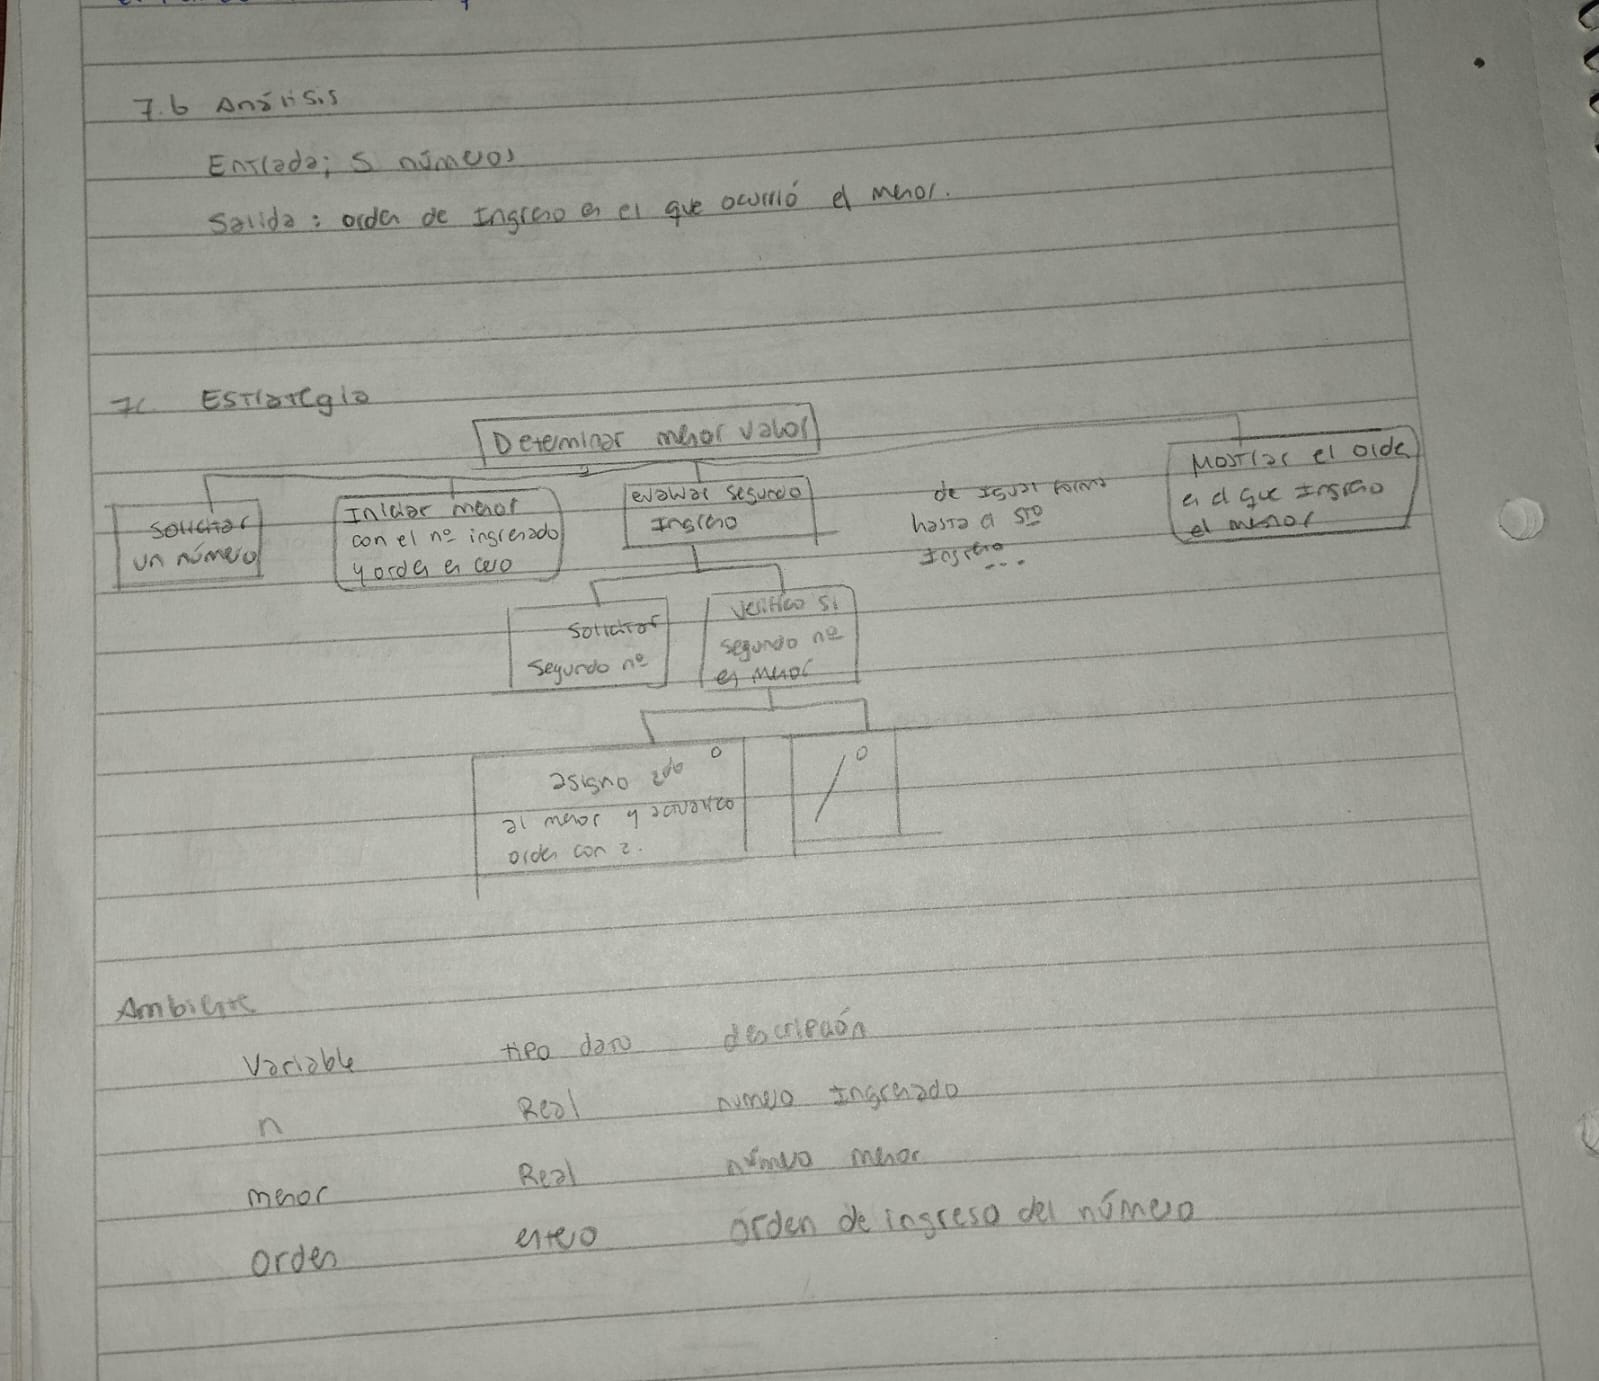 7.b Análisis
Entrada: 5 números
Salida: orden de Ingreso en el que ocurrió el menor.
7c. Estrategia
Determinar menor valor
Solicitar
un número
Iniciar menor
con el nº ingresado
y orden en cero
evaluar segundo
Ingreso
de Igual forma
hasta el 5to
Ingreso...
Mostrar el orden
en el que Ingreso
el menor
Solicitar
segundo nº
Verifico si
segundo nº
es menor
asigno 2do
al menor y actualizo
orden con 2.
Ambiente
Variable tipo dato descripción
n Real numero Ingresado
menor Real número menor
orden entero orden de ingreso del número